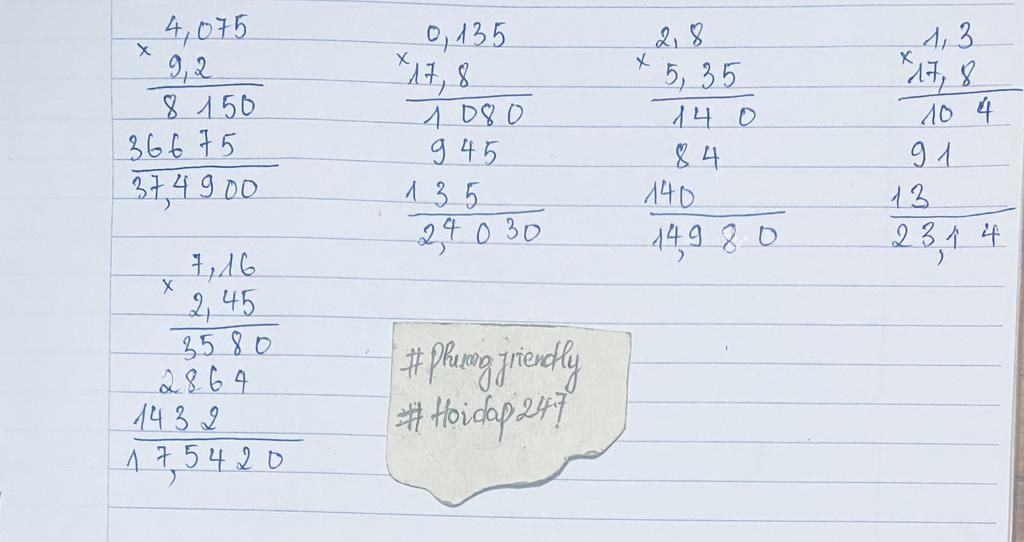 4,075
x
9,2
8 150
36675
37,4900
0,135
x
17,8
1 080
945
135
2,4030
2,8
x
5,35
14 0
84
140
14,980
1,3
x
17,8
10 4
91
13
23,14
7,16
x
2,45
3580
2864
1432
17,5420
#Phuong friendly
#Hoidap247